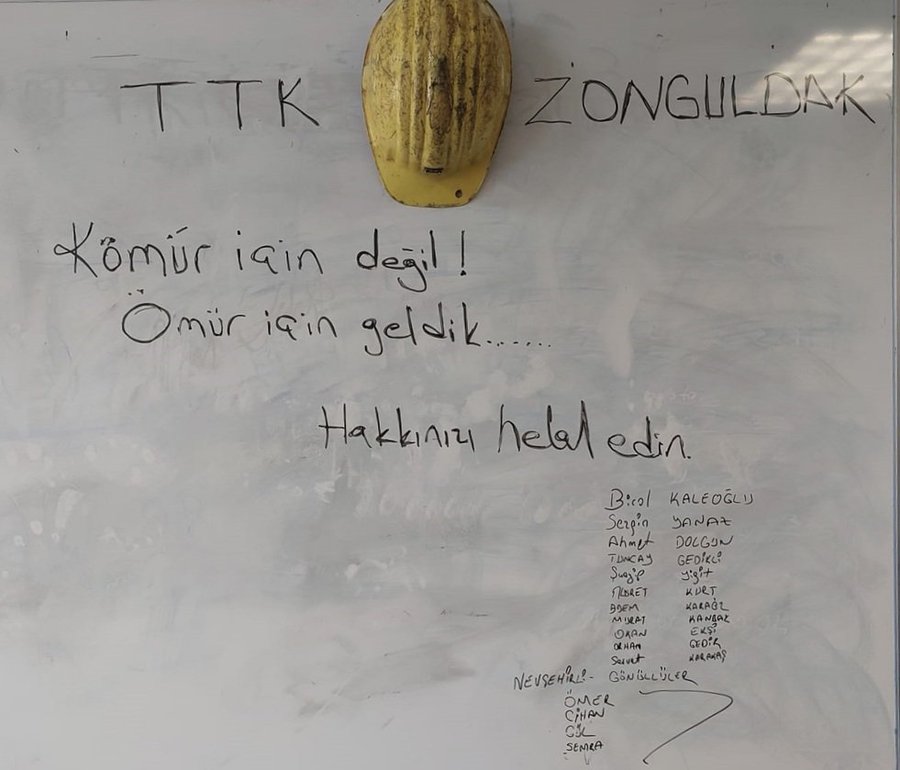 TTK ZONGULDAK
Kömür için değil!
Ömür için geldik.......
Hakkınızı helal edin.
Birol KALEOĞLU
Sezgin YANAZ
Ahmet DOLGUN
TUNCAY GEDİKLİ
Yiğit
KURT
ADEM KARAÖZ
MURAT KANBAZ
OKAN EKŞİ
ORHAN GEDİK
Servet KARAKAŞ
NEVŞEHİRLİ- GÖNÜLLÜLER
ÖMER
CİHAN
GÜL
SEMRA